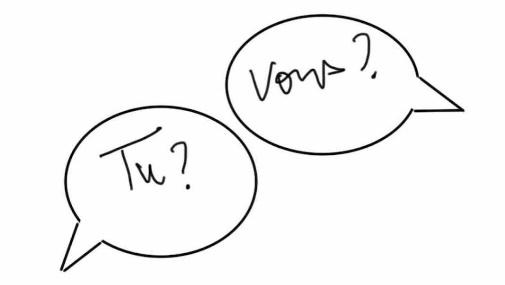 Vous?
Tu?